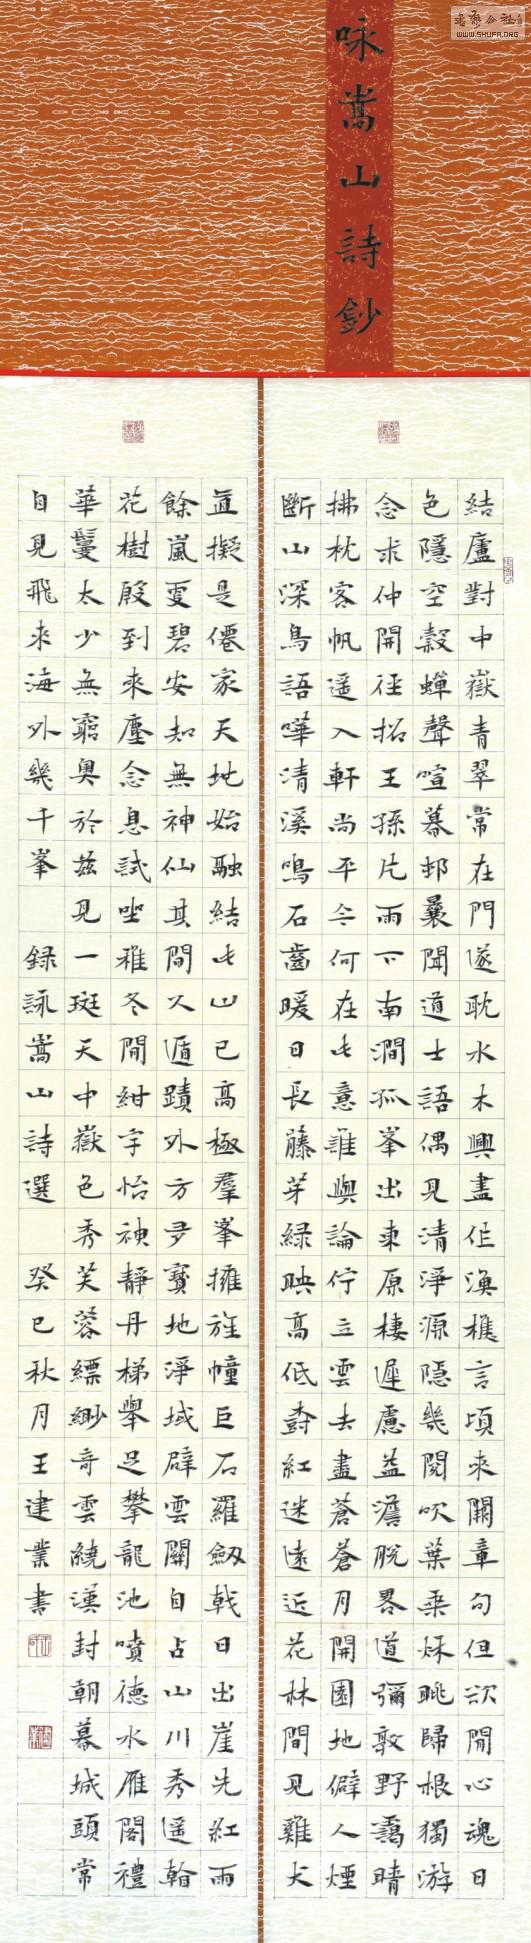 咏嵩山詩鈔
結廬對中嶽青翠常在門遂耽水木興盡作漁樵言頃來闕章句但欲閒心魂日
色隱空穀蟬聲喧暮邨曩聞道士語偶見清淨源隱幾閱吹葉乘秋眺歸根獨游
念求仲開徑招王孫片雨下南澗孤峯出東原棲遲慮益澹脫畧道彌敦野靄晴
拂枕客帆遥入軒尚平今何在此意誰與論佇立雲去盡蒼蒼月開園地僻人煙
斷山深鳥語嘩清溪鳴石齒暖日長藤芽綠映高低樹紅迷遠近花林間見雞犬
直擬是僊家天地始融結此山已高極羣峯擁旌幢巨石羅劔戟日出崖先紅雨
餘嵐更碧安知無神仙其間久遁蹟外方多寶地淨域辟雲關自占山川秀遥翰
花樹殷到來塵念息試坐雅冬閒紺宇怡神靜丹梯舉足攀龍池噴德水雁閣禮
華鬘太少無窮奧於兹見一斑天中嶽色秀芙蓉縹緲奇雲繞漢封朝暮城頭常
自見飛來海外幾千峯 録詠嵩山詩選 癸巳秋月王建業書
WWW.SHUFA.ORG